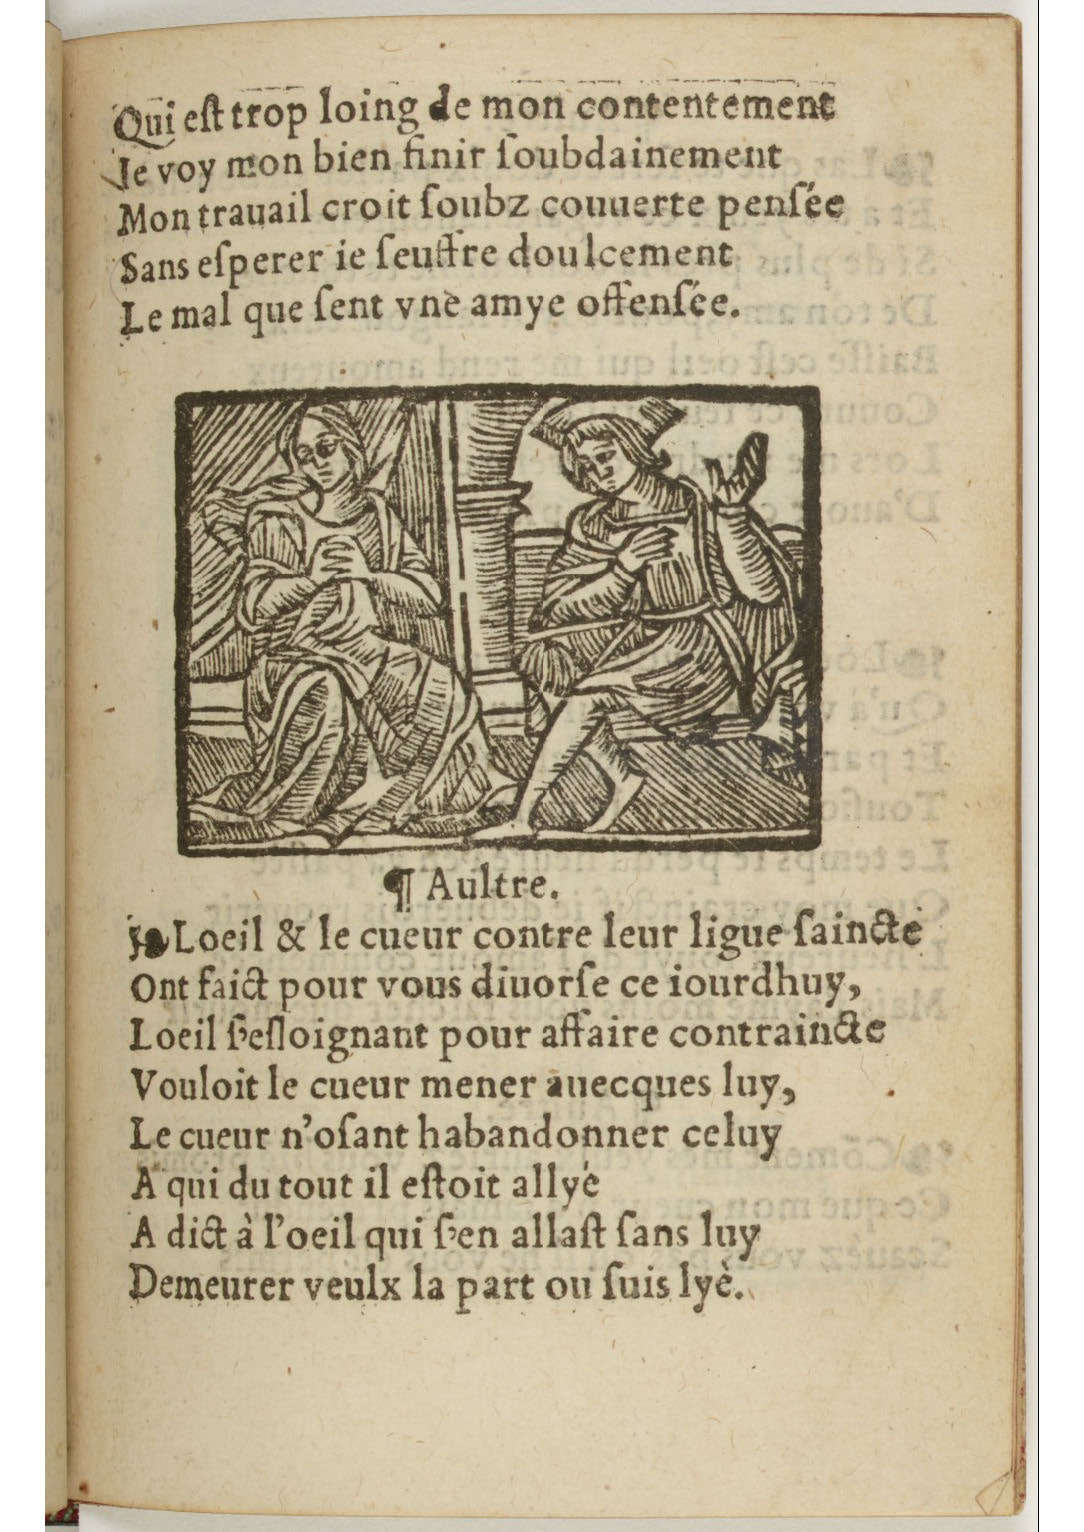 Qui eſt trop loing de mon contentement
Ie voy mon bien finir ſoubdainement
Mon trauail croit ſoubz couuerte penſée
Sans eſperer ie ſeuffre doulcement
Le mal que ſent vne amye offenſée.
¶ Aultre.
❧ Loeil & le cueur contre leur ligue ſaincte
Ont faict pour vous diuorſe ce iourdhuy,
Loeil ſ'eſloignant pour affaire contraincte
Vouloit le cueur mener auecques luy,
Le cueur n'oſant habandonner celuy
A qui du tout il eſtoit allyé
A dict à l'oeil qui ſ'en allaſt ſans luy
Demeurer veulx la part ou ſuis lyè.